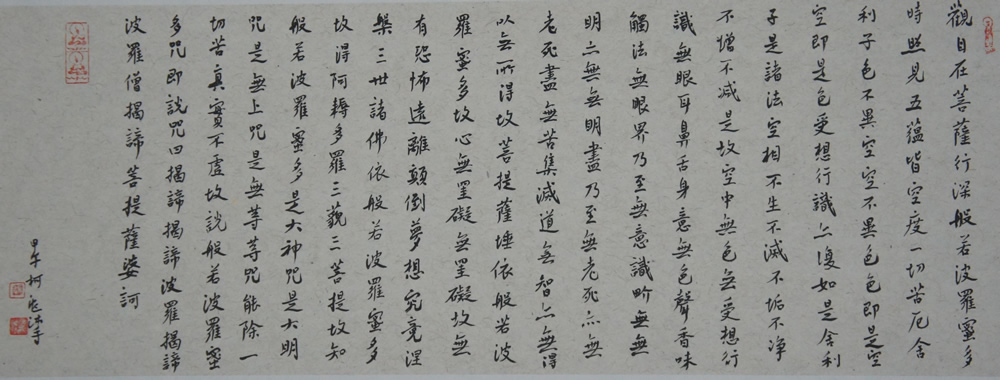 觀自在菩薩行深般若波羅蜜多
時照見五蘊皆空度一切苦厄舍
利子色不異空空不異色色即是空
空即是色受想行識亦復如是舍利
子是諸法空相不生不滅不垢不净
不增不減是故空中無色無受想行
識無眼耳鼻舌身意無色聲香味
觸法無眼界乃至無意識界無無
明亦無無明盡乃至無老死亦無
老死盡無苦集滅道無智亦無得
以無所得故菩提薩埵依般若波
羅蜜多故心無罣礙無罣礙故無
有恐怖遠離顛倒夢想究竟涅
槃三世諸佛依般若波羅蜜多
故得阿耨多羅三藐三菩提故知
般若波羅蜜多是大神咒是大明
咒是無上咒是無等等咒能除一
切苦真實不虛故說般若波羅蜜
多咒即說咒曰揭諦揭諦波羅揭諦
波羅僧揭諦菩提薩婆訶
甲午柯